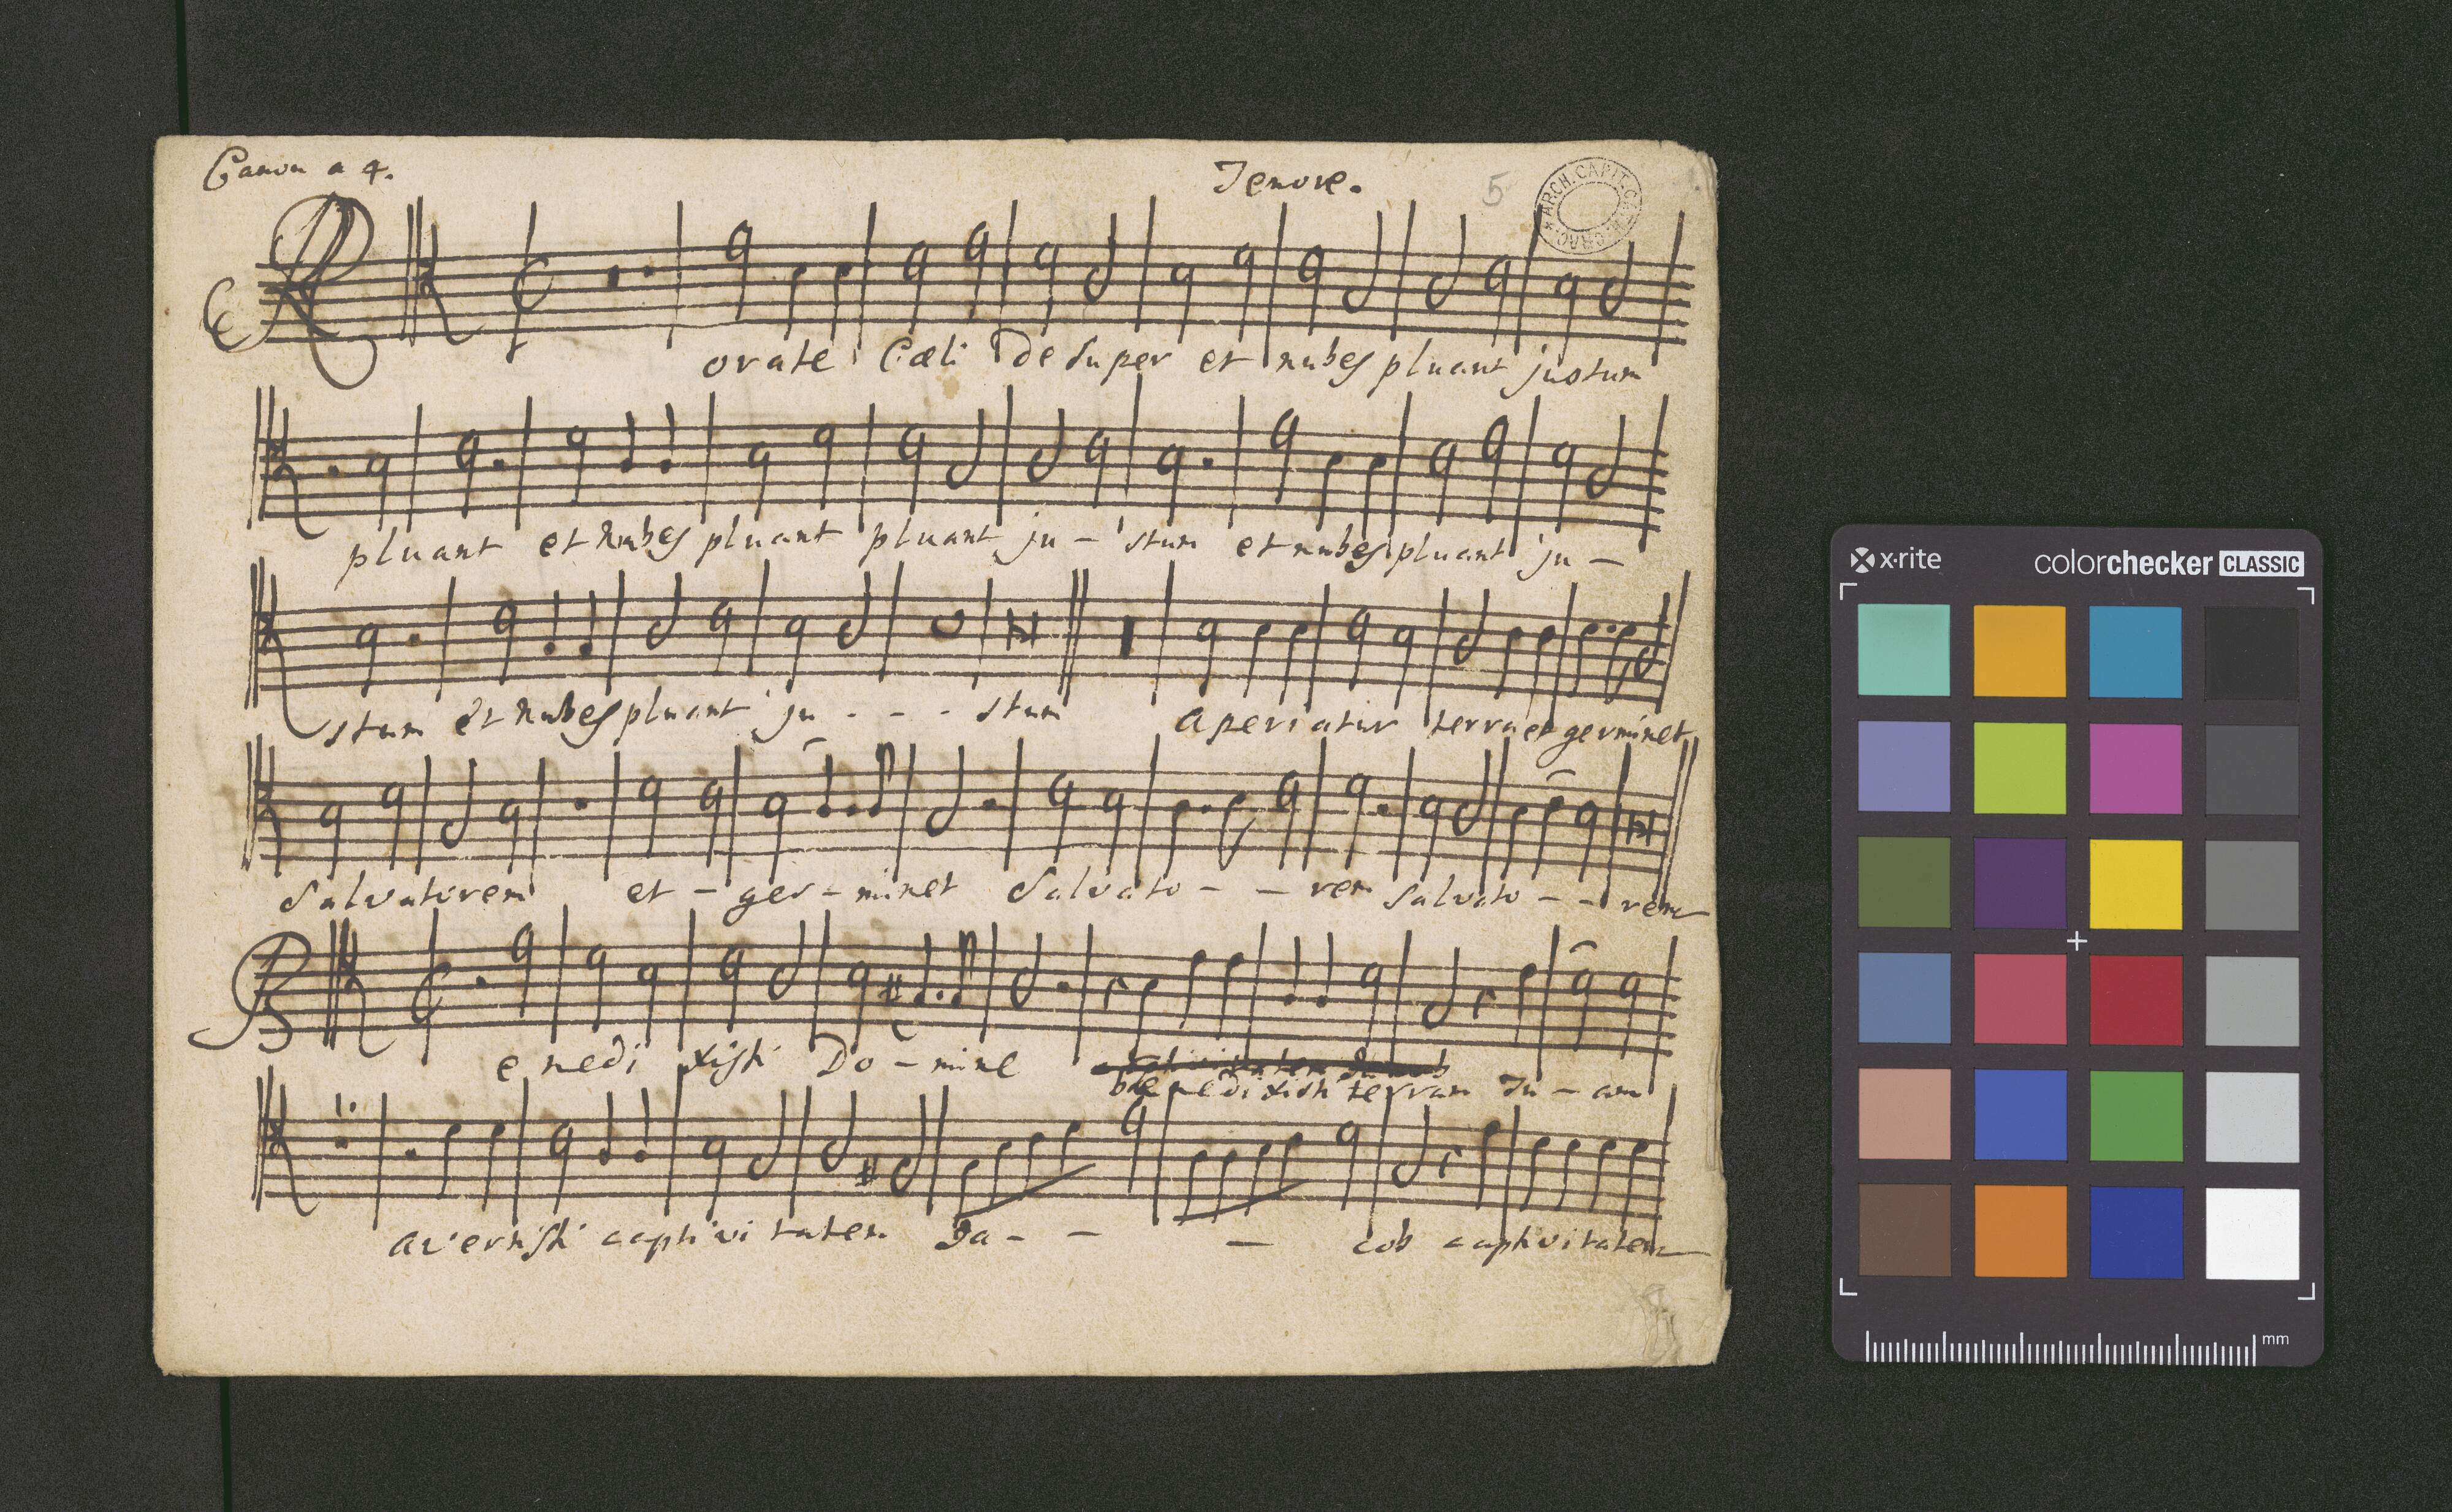 Canon a 4.
Tenore.
5
ARCH. CAPIT. CRAC.
Rorate Cæli de super et nubes pluant justum
pluant et nubes pluant pluant ju - stum et nubes pluant ju -
stum et nubes pluant ju - - - stum Aperiatur terra et germinet
Salvatorem et - ger - minet Salvato - - rem salvato - - rem
Benedixisti Do - mine
benedixisti terram Tu - am
avertisti captivitatem Ja - - - cob captivitatem
x-rite
colorchecker CLASSIC
mm